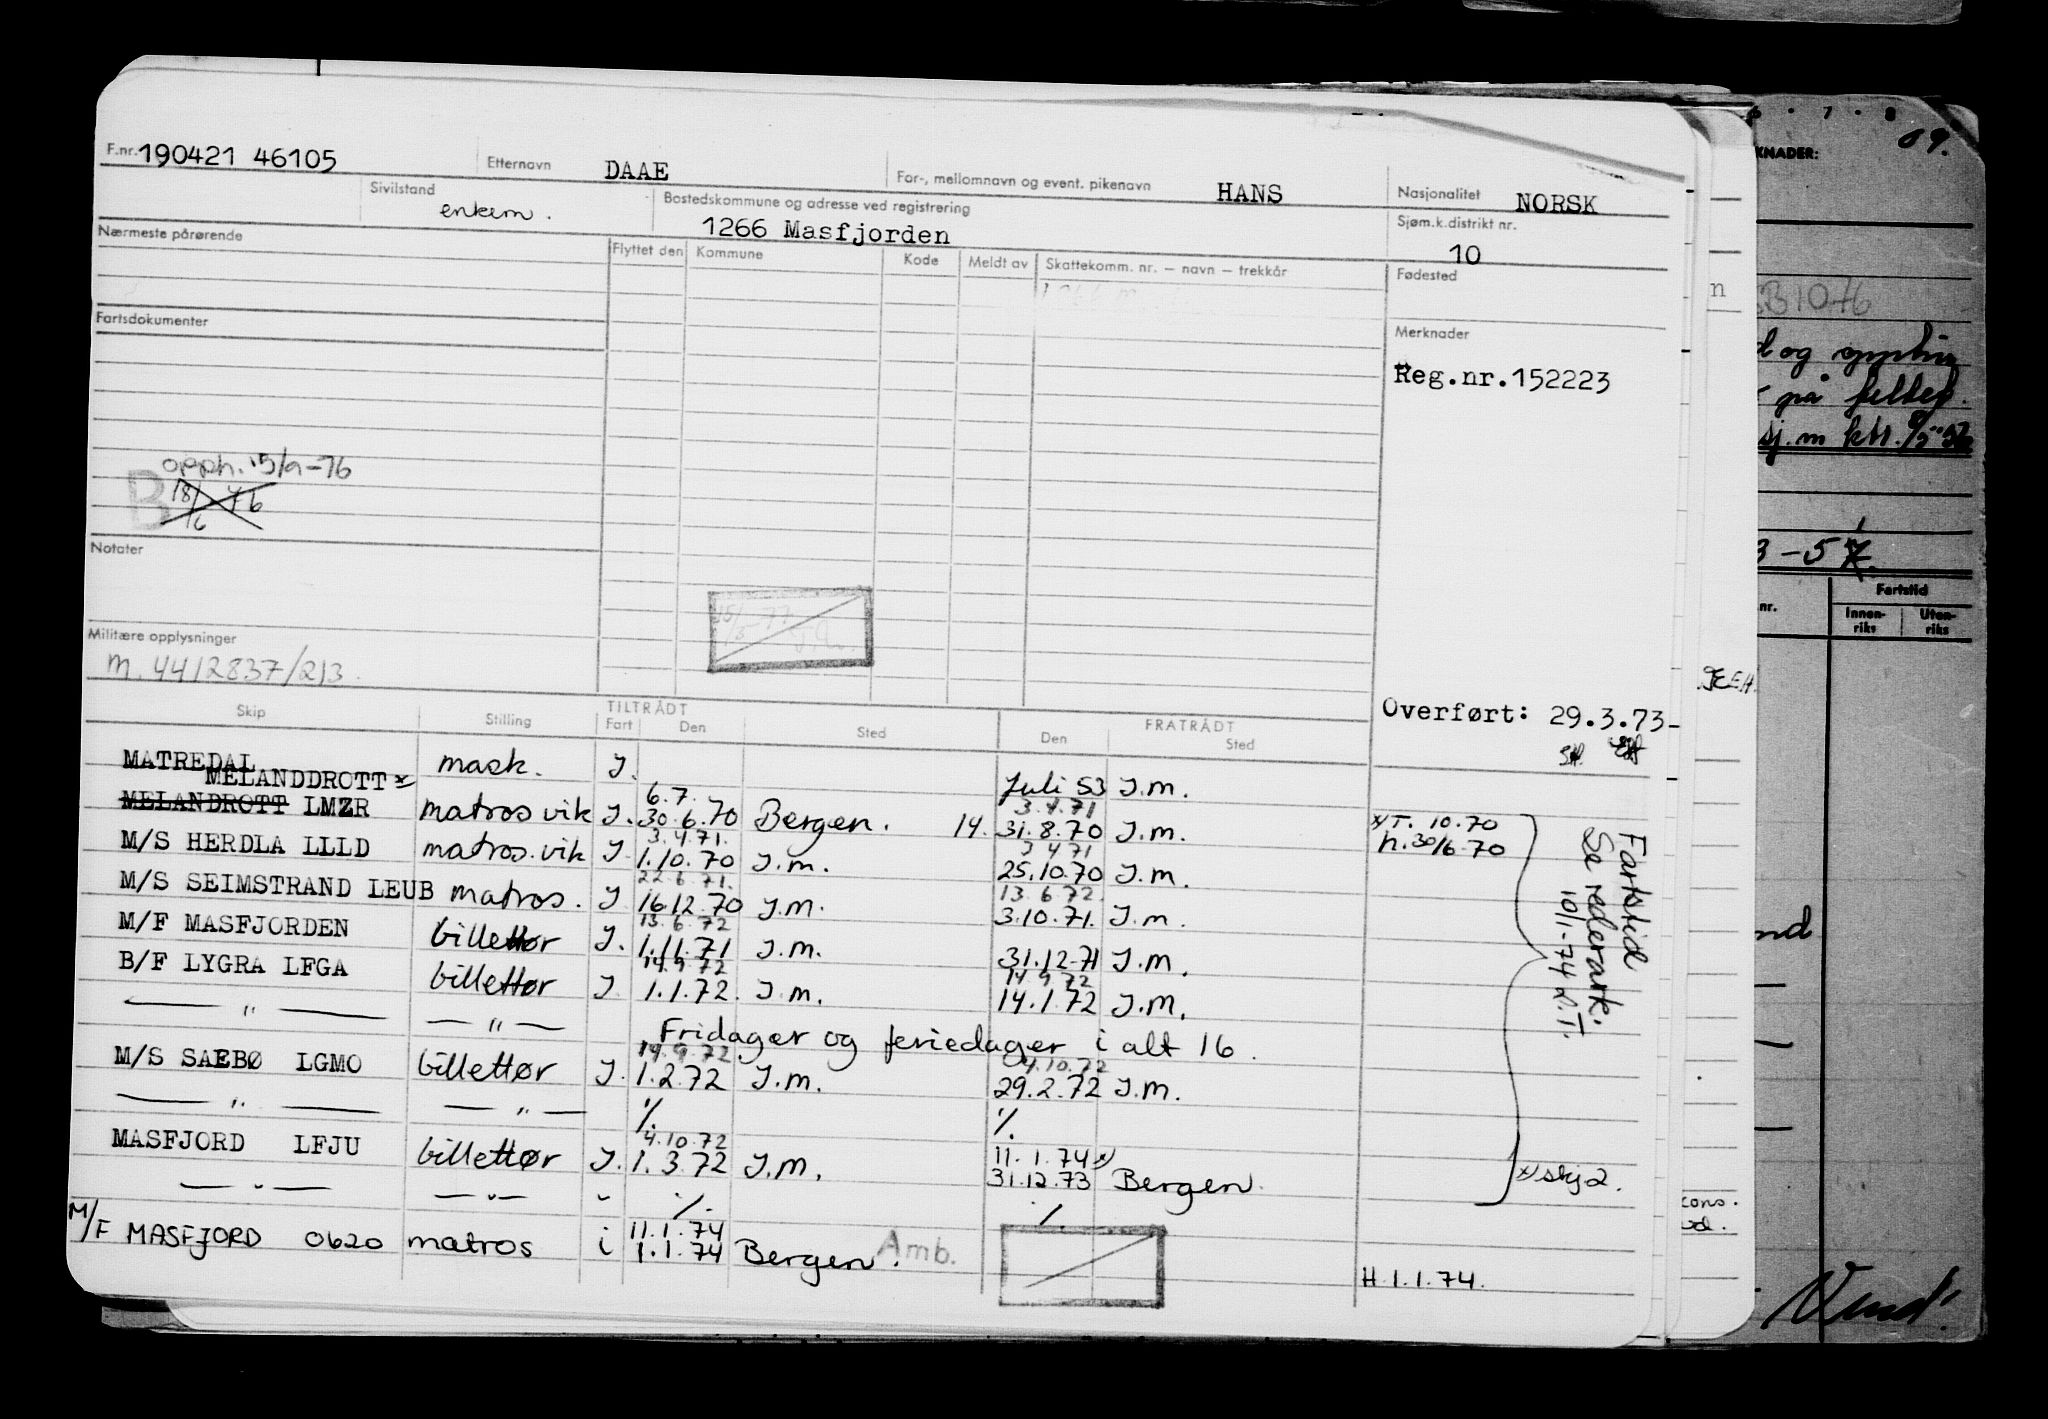 F.nr. 190421 46105 Etternavn DAAE For-, mellomnavn og event. pikenavn HANS Nasjonalitet NORSK
Sivilstand enkem. Bostedskommune og adresse ved registrering 1266 Masfjorden Sjøm.k.distrikt nr. 10
Nærmeste pårørende Flyttet den Kommune Kode Meldt av Skattekomm. nr. – navn – trekkår Fødested
Fartsdokumenter Merknader
Reg.nr.152223
opph. 15/9-76
B 18/6 76
Notater
Militære opplysninger
m. 4412837/213.
Overført: 29.3.73-
Skip Stilling TILTRÅDT Fart Den Sted FRATRÅDT Den Sted
MATREDAL mask. J. Juli 53 J.m.
MELANDDROTT x) 6.7. 3.4.71
MELANDROTT LMZR matros vik J. 30.6.70 Bergen. 14. 31.8.70 J.m. x) T. 10.70
3.4.71. 3 4 71 h.30/6-70
M/S HERDLA LLLD matros.vik J. 1.10.70 J.m. 25.10.70 J.m.
22.6.71. 13.6.72.
M/S SEIMSTRAND LEUB matros. J 16.12.70 J.m. 3.10.71. J.m.
13.6.72
M/F MASFJORDEN billettør J. 1.11.71 J.m. 31.12-71 J.m.
14.9.72 14.9.72
B/F LYGRA LFGA billettør J. 1.1.72. J.m. 14.1.72 J.m.
— " — — " — Fridager og feriedager i alt 16.
14.9.72 4.10.72
M/S SAEBØ LGMO billettør J. 1.2.72 J.m. 29.2.72 J.m.
— " — — " — %. %.
4.10.72 11.1.74 x)
MASFJORD LFJU billettør J. 1.3.72 J.m. 31.12.73 Bergen. x) skj 2.
— " — — " — " %. %.
11.1.74
M/F MASFJORD 0620 matros i 1.1.74 Bergen. Amb. H.1.1.74.
Fartstid
Se rederark.
10/1-74
KNADER: 09.
og
på feltet.
Fartstid
nr. Innen-riks Uten-riks